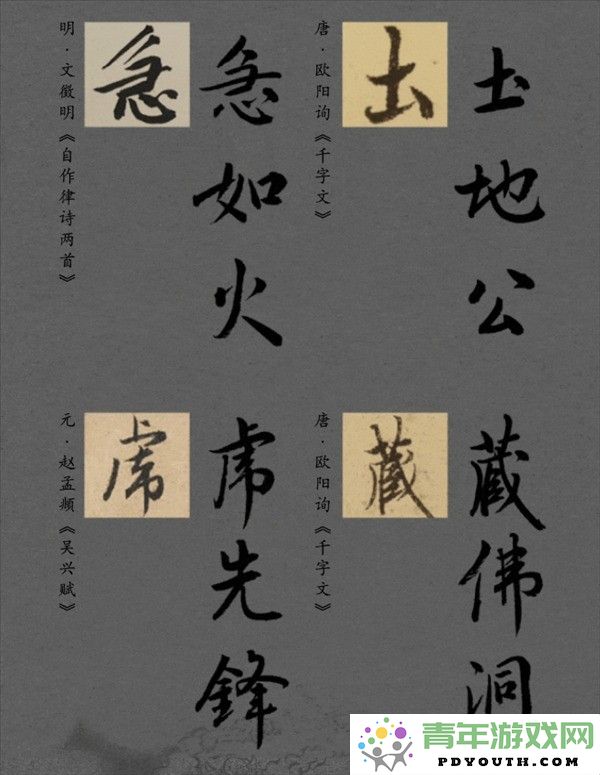 土地公
土
唐·欧阳询《千字文》
急如火
急
明·文徵明《自作律诗两首》
藏佛洞
藏
唐·欧阳询《千字文》
虎先鋒
虎
元·赵孟頫《吴兴赋》
青年游戏网
PDYOUTH.COM